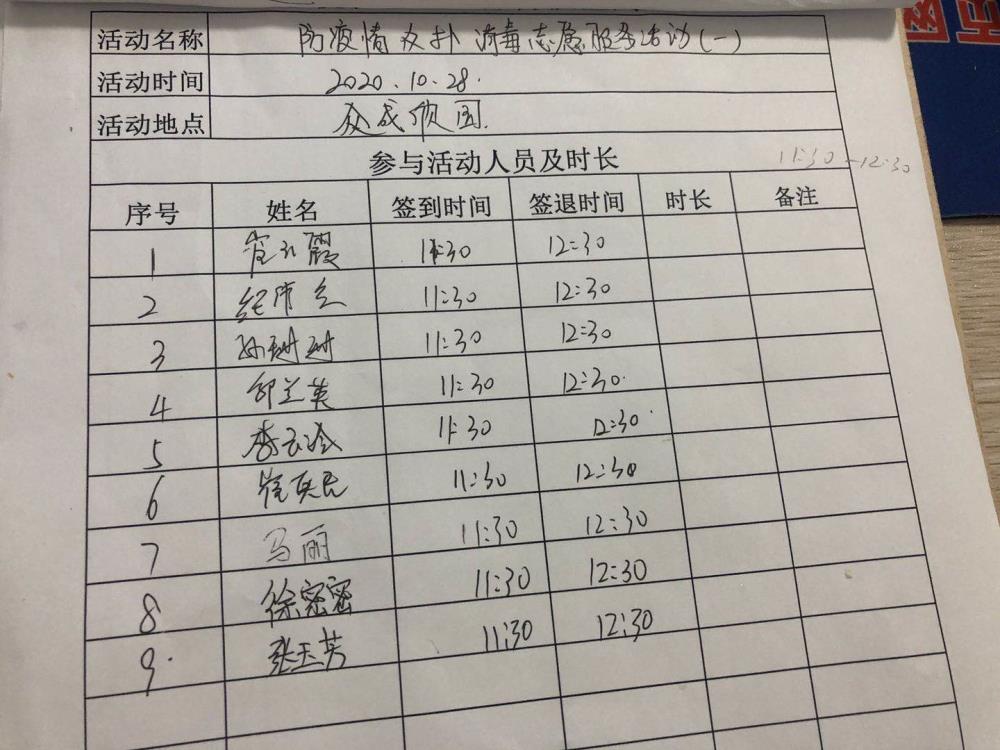 活动名称 防疫情反扑 消毒志愿服务活动(一)
活动时间 2020.10.28.
活动地点 众成颐园.
参与活动人员及时长 11:30-12:30
序号 姓名 签到时间 签退时间 时长 备注
1 霞 11:30 12:30
2 纪 11:30 12:30
3 孙珊珊 11:30 12:30
4 邹兰英 11:30 12:30.
5 李云 11:30 12:30
6 崔英民 11:30 12:30
7 马丽 11:30 12:30
8 徐密密 11:30 12:30
9. 张玉芳 11:30 12:30